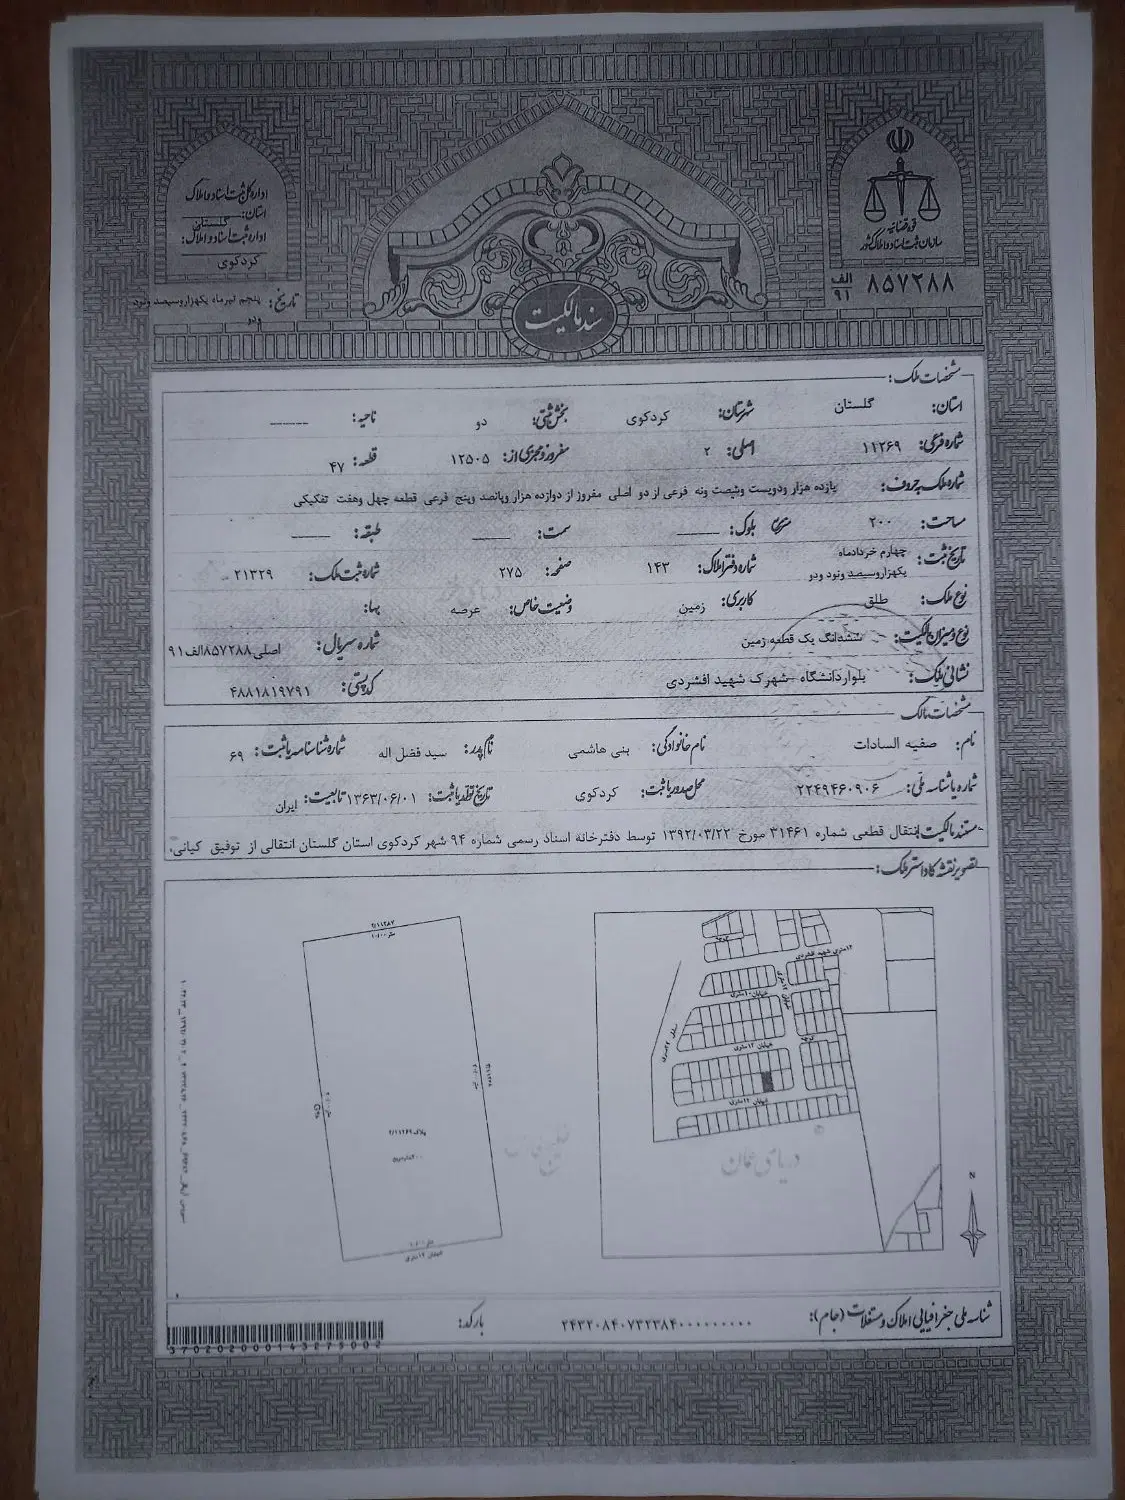 قوه قضائیه
سازمان ثبت اسناد و املاک کشور
۸۵۷۲۸۸ الف ۹۱
اداره کل ثبت اسناد و املاک
استان: گلستان
اداره ثبت اسناد و املاک:
کردکوی
تاریخ: پنجم تیرماه یکهزاروسیصد ونود
ودو
سند مالکیت
مشخصات ملک:
استان: گلستان شهرستان: کردکوی بخش ثبتی: دو ناحیه: ـــــــ
شماره فرعی: ۱۱۲۶۹ اصلی: ۲ مفروز و مجزی از: ۱۲۵۰۵ قطعه: ۴۷
شماره ملک به حروف: یازده هزار ودویست وشصت ونه فرعی از دو اصلی مفروز از دوازده هزار وپانصد وپنج فرعی قطعه چهل وهفت تفکیکی
مساحت: ۲۰۰ بلوک: ـــــــ سمت: ـــــــ طبقه: ـــــــ
تاریخ ثبت: چهارم خردادماه یکهزاروسیصد ونود ودو شماره دفتر املاک: ۱۴۳ صفحه: ۲۷۵ شماره ثبت ملک: ۲۱۳۲۹
نوع ملک: طلق کاربری: زمین وضعیت خاص: عرصه بها:
نوع و میزان مالکیت: ششدانگ یک قطعه زمین شماره سریال: اصلی۸۵۷۲۸۸الف۹۱
نشانی ملک: بلواردانشگاه -شهرک شهید افشردی کد پستی: ۴۸۸۱۸۱۹۷۹۱
مشخصات مالک
نام: صفیه السادات نام خانوادگی: بنی هاشمی نام پدر: سید فضل اله شماره شناسنامه یا ثبت: ۶۹
شماره یا شناسه ملی: ۲۲۴۹۴۶۰۹۰۶ محل صدور یا ثبت: کردکوی تاریخ تولد یا ثبت: ۱۳۶۳/۰۶/۰۱ تابعیت: ایران
مستند مالکیت: انتقال قطعی شماره ۳۱۴۶۱ مورخ ۱۳۹۲/۰۳/۲۲ توسط دفترخانه اسناد رسمی شماره ۹۴ شهر کردکوی استان گلستان انتقالی از توفیق کیانی.
تصویر نقشه کاداستر ملک:
۱۲متری شهید افشردی
خیابان ۱۰متری
خیابان ۱۲متری
خیابان ۱۲متری
N
۲/۱۱۲۸۷
پلاک ۲/۱۱۲۶۹
خیابان ۱۲متری
دریای عمان
شناسه ملی جغرافیایی املاک و مستغلات (جام): ۲۴۳۲۰۸۴۰۷۳۲۳۸۴۰۰۰۰۰۰۰۰۰ بارکد: